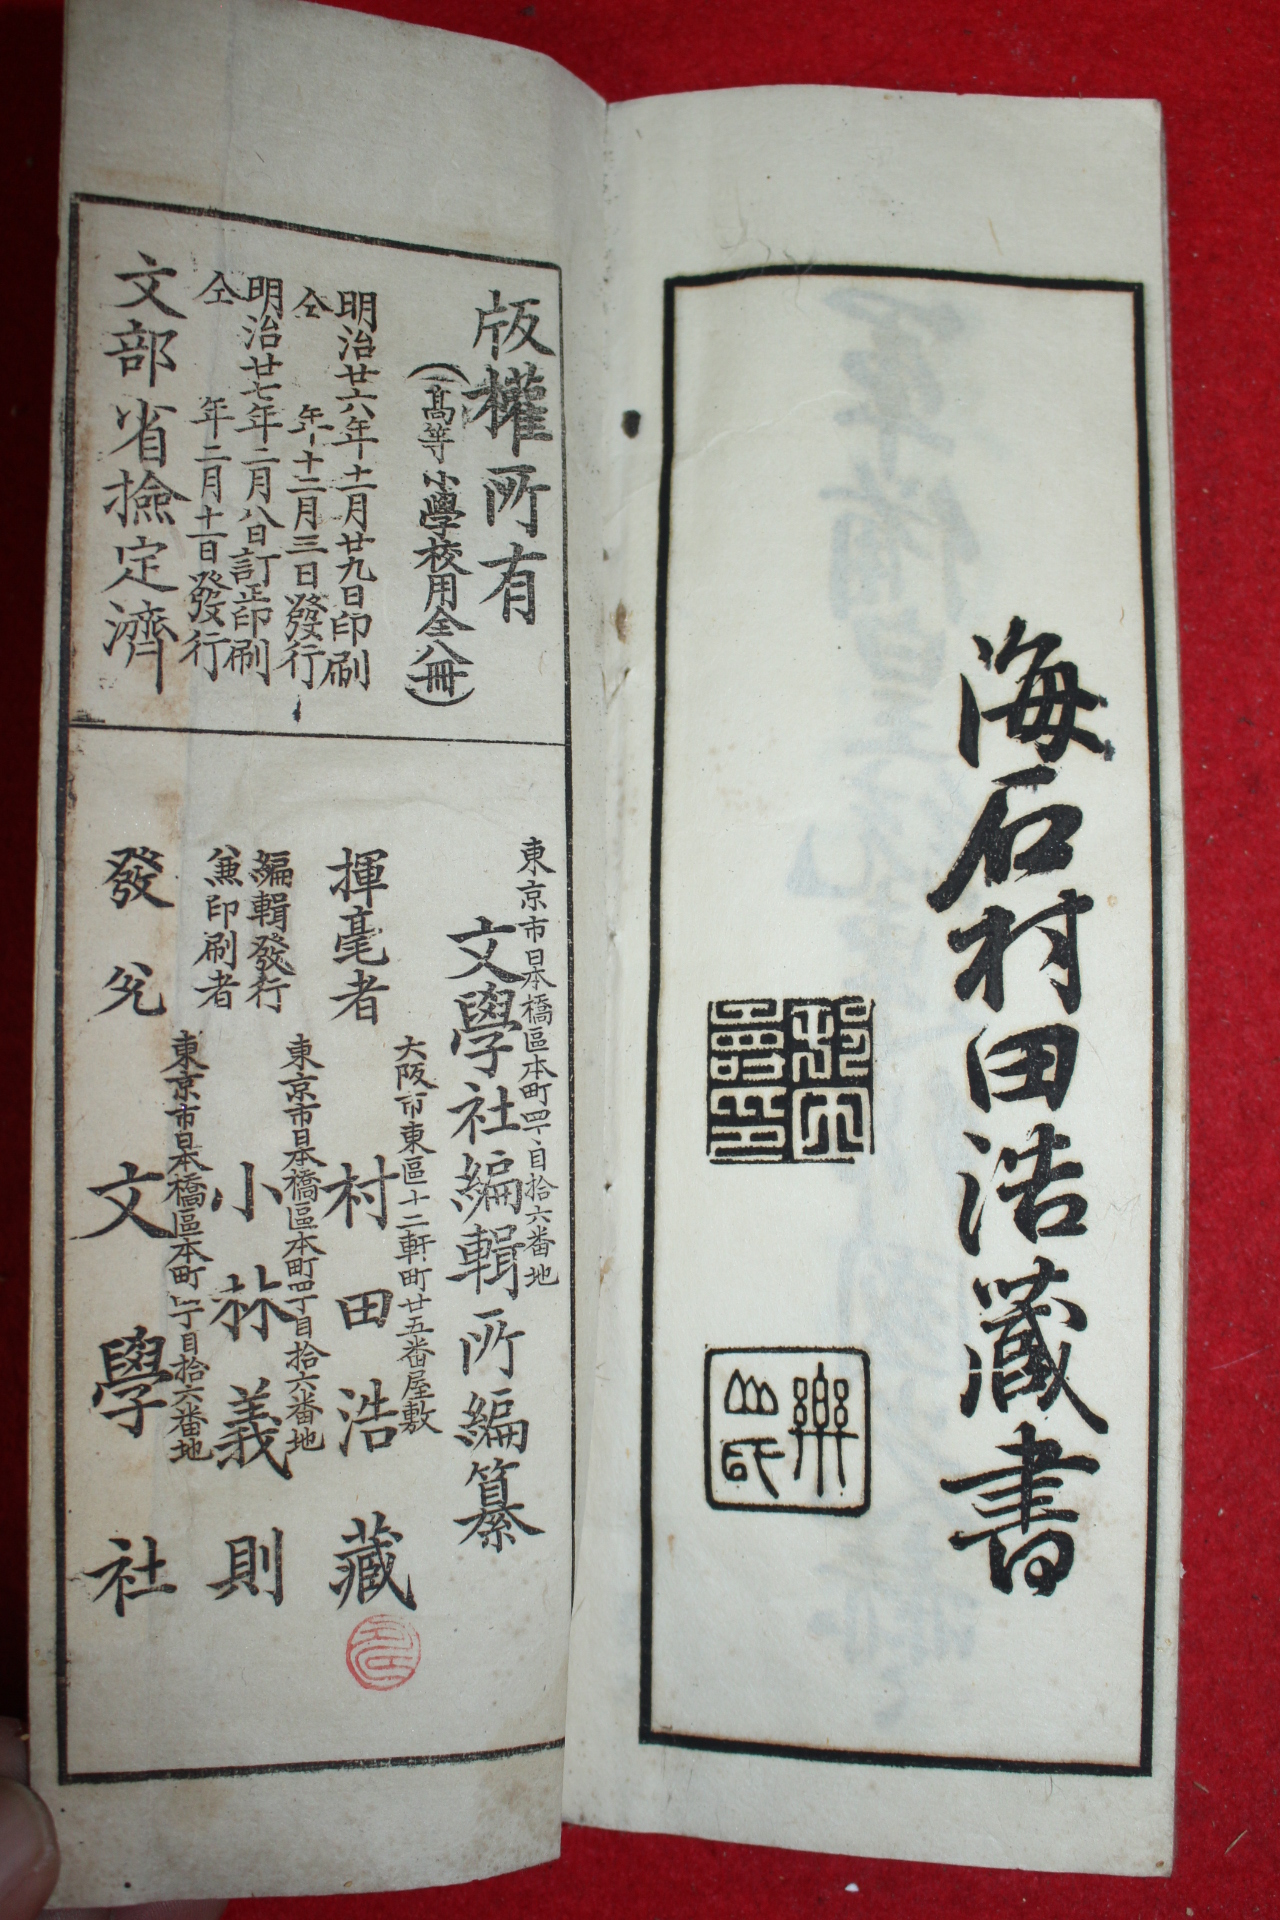 海石村田浩藏書
版權所有
(高等小學校用全八冊)
明治廿六年十一月廿九日印刷
仝年十二月三日發行
明治廿七年二月八日訂正印刷
仝年二月十一日發行
文部省撿定濟
東京市日本橋區本町四丁目拾六番地
文學社編輯所編纂
大阪市東區十二軒町廿五番屋敷
揮毫者 村田浩藏
東京市日本橋區本町四丁目拾六番地
編輯發行
兼印刷者 小林義則
東京市日本橋區本町四丁目拾六番地
發兌 文學社